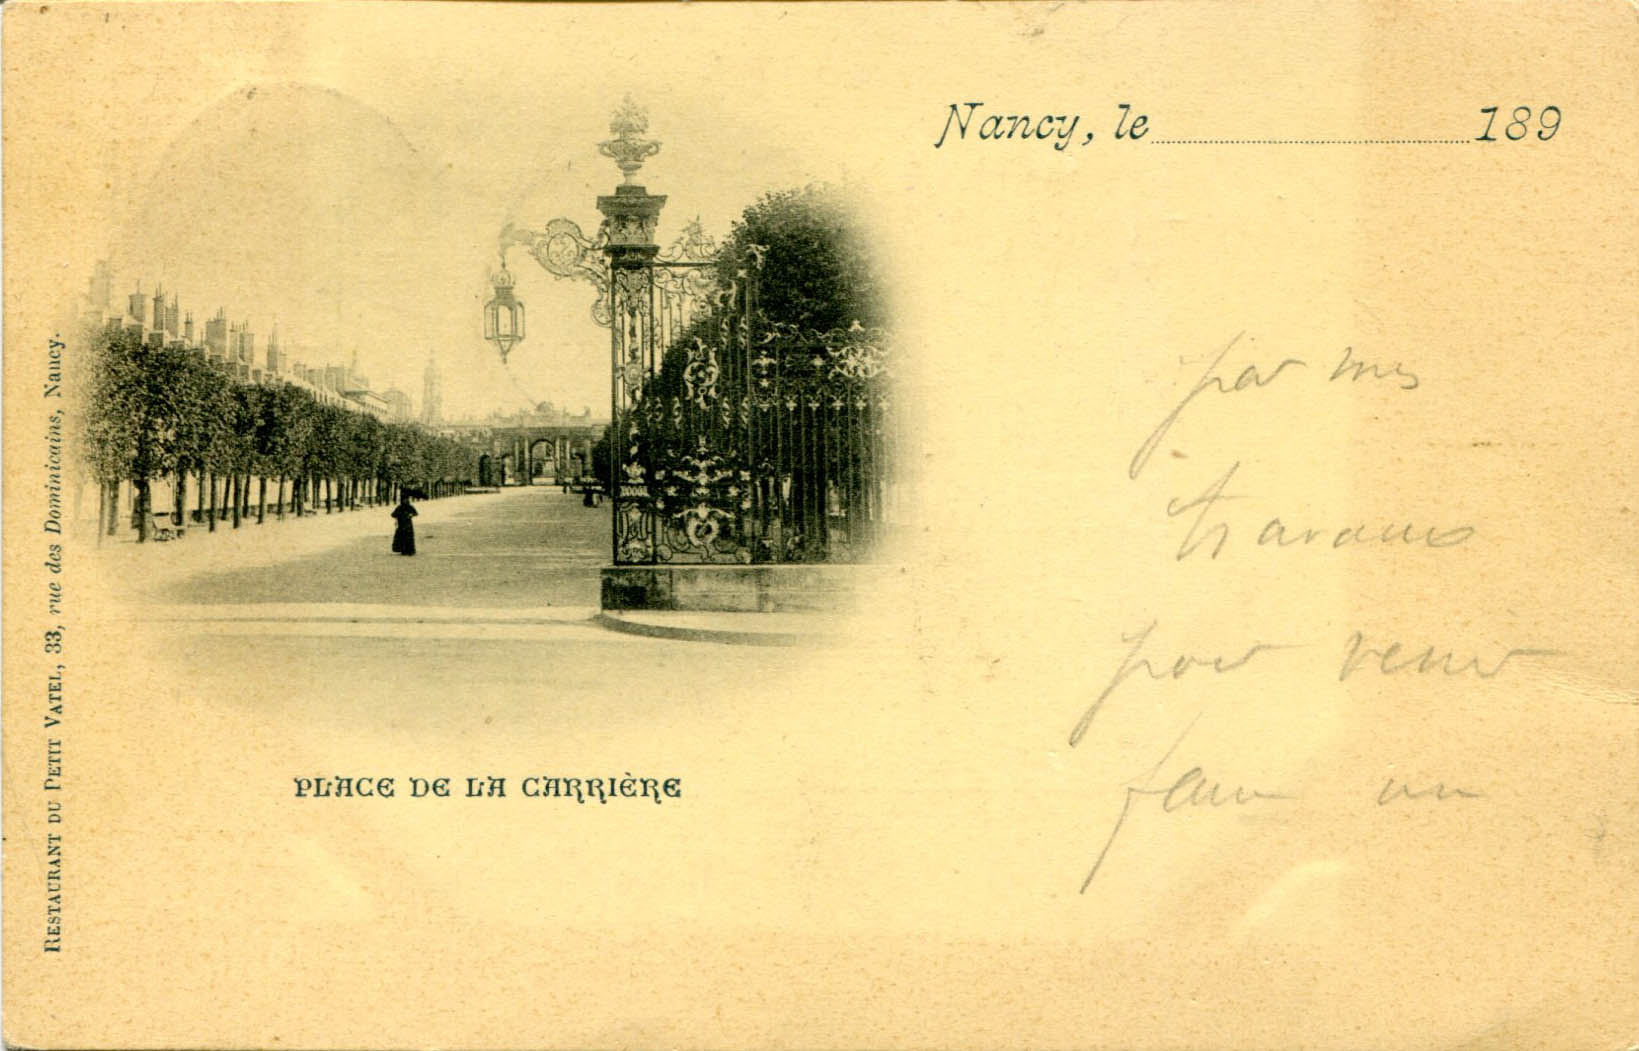 Nancy, le 189
par mes
travaux
pour venir
faire un
PLACE DE LA CARRIÈRE
RESTAURANT DU PETIT VATEL, 33, rue des Dominicains, Nancy.